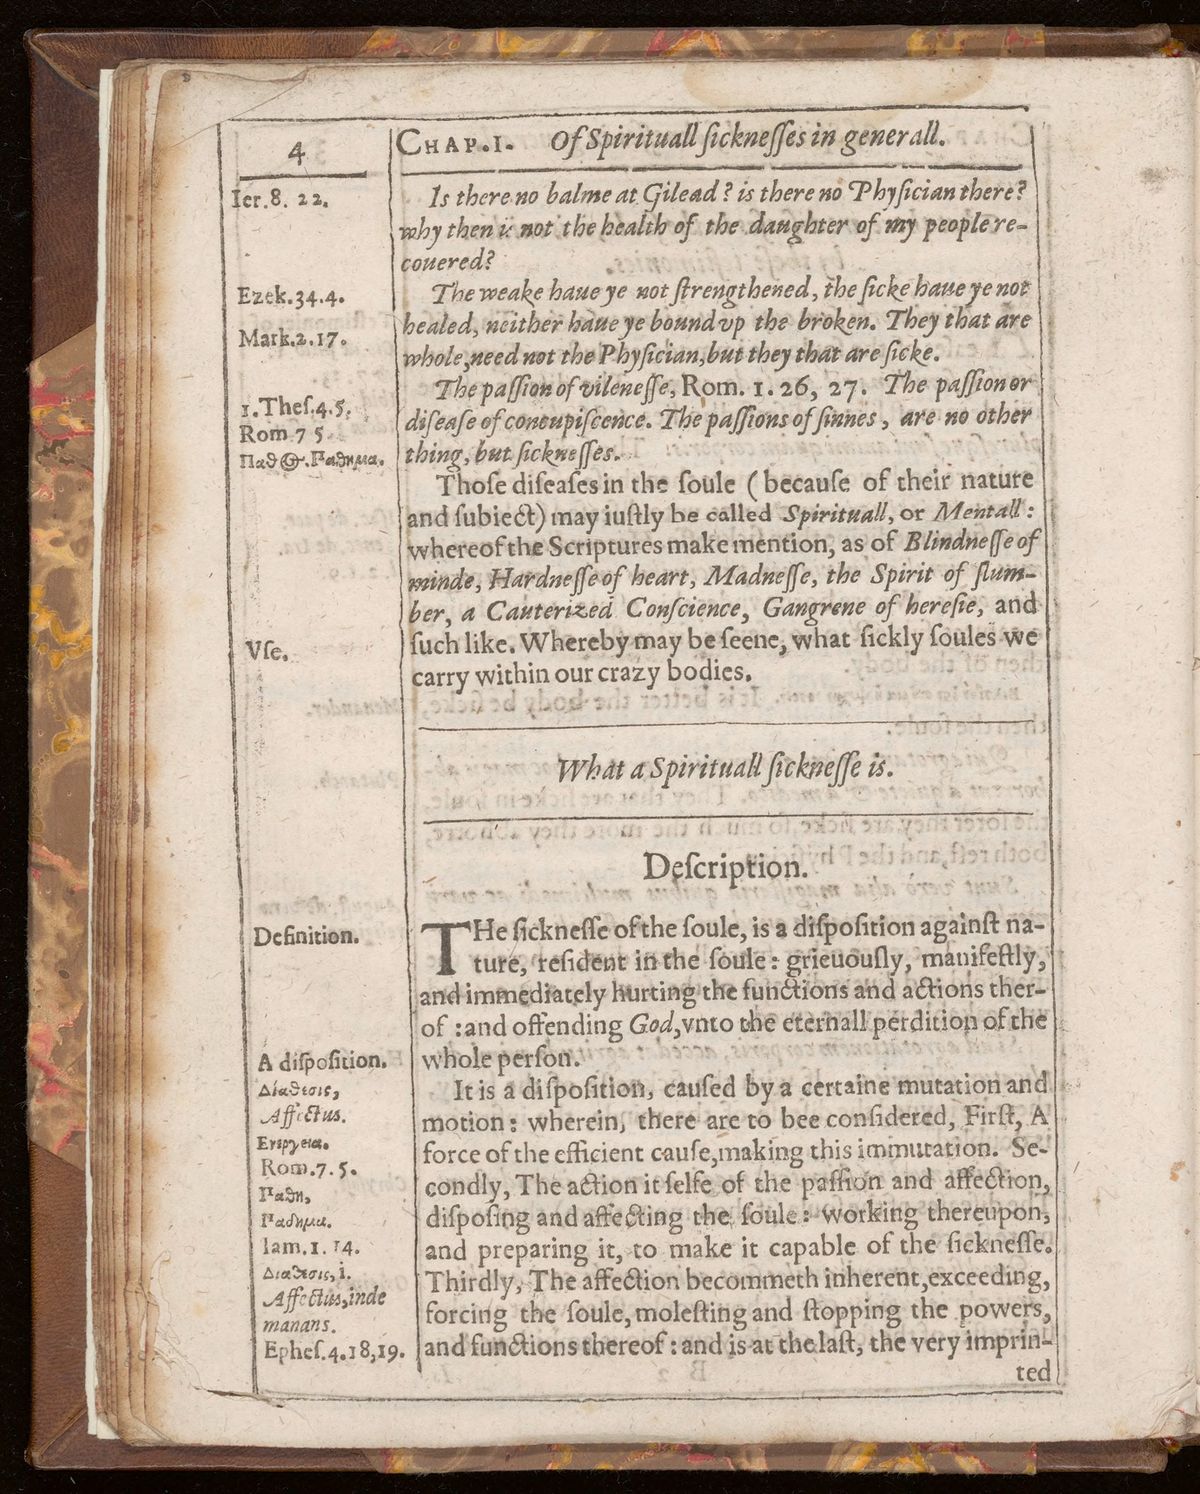 4
CHAP. I. Of Spirituall ſickneſſes in generall.
Ier. 8. 22.
Is there no balme at Gilead? is there no Phyſician there?
why then is not the health of the daughter of my people re-
couered?
Ezek. 34. 4.
The weake haue ye not ſtrengthened, the ſicke haue ye not
healed, neither haue ye bound vp the broken. They that are
Mark. 2. 17.
whole, need not the Phyſician, but they that are ſicke.
The paſſion of vileneſſe, Rom. 1. 26, 27. The paſſion or
1. Theſ. 4. 5.
diſeaſe of concupiſcence. The paſſions of ſinnes, are no other
Rom 7 5
thing, but ſickneſſes.
Παθ Παθημα.
Thoſe diſeaſes in the ſoule (becauſe of their nature
and ſubiect) may iuſtly be called Spirituall, or Mentall:
whereof the Scriptures make mention, as of Blindneſſe of
minde, Hardneſſe of heart, Madneſſe, the Spirit of ſlum-
ber, a Cauterized Conſcience, Gangrene of hereſie, and
ſuch like. Whereby may be ſeene, what ſickly ſoules we
Vſe.
carry within our crazy bodies.
What a Spirituall ſickneſſe is.
Deſcription.
Definition.
THe ſickneſſe of the ſoule, is a diſpoſition againſt na-
ture, reſident in the ſoule: grieuouſly, manifeſtly,
and immediately hurting the functions and actions ther-
of: and offending God, vnto the eternall perdition of the
A diſpoſition.
whole perſon.
Διαθεσις,
It is a diſpoſition, cauſed by a certaine mutation and
Affectus.
motion: wherein, there are to bee conſidered, Firſt, A
Ενεργεια.
force of the efficient cauſe, making this immutation. Se-
Rom. 7. 5.
condly, The action it ſelfe of the paſſion and affection,
Παθη,
diſpoſing and affecting the ſoule: working thereupon,
Παθημα.
and preparing it, to make it capable of the ſickneſſe.
Iam. 1. 14.
Thirdly, The affection becommeth inherent, exceeding,
Διαθεσις, i.
Affectus, inde
forcing the ſoule, moleſting and ſtopping the powers,
manans.
Epheſ. 4. 18, 19.
and functions thereof: and is at the laſt, the very imprin-
ted